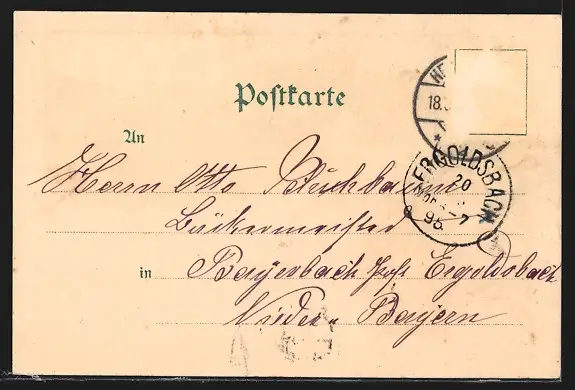 Postkarte
18.
ERGOLDSBACH
20
98
7
An
Herrn Otto Buchbaum
Bäckermeister
in Bayerbach Post Ergoldsbach
Nieder-Bayern